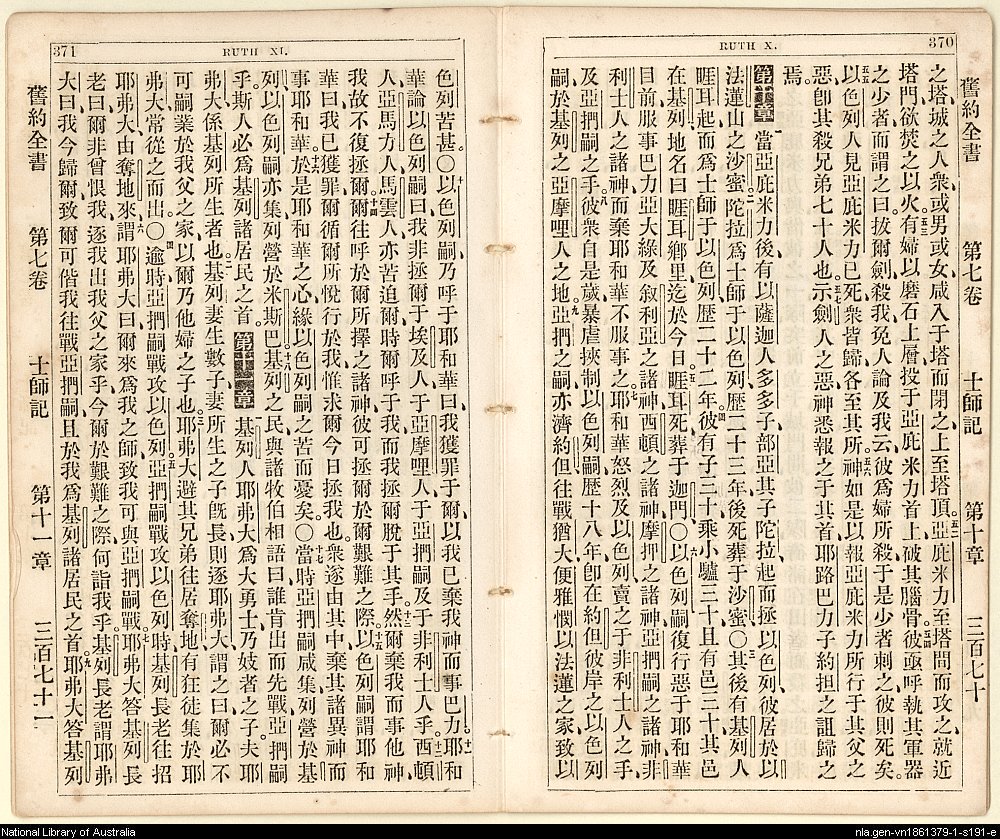 370
RUTH X.
舊約全書 第七卷 士師記 第十章 三百七十
之塔、城之人衆、或男或女、咸入于塔而閉之、上至塔頂、亞庇米力至塔問而攻之、就近
塔門欲焚之以火、有婦以磨石上層投于亞庇米力首上、破其腦骨、彼亟呼執其軍器
之少者而謂之曰、拔爾劍殺我、免人論及我云、彼爲婦所殺、于是少者刺之、彼則死矣。
以色列人見亞庇米力已死、衆皆歸、各至其所、神如是以報亞庇米力所行于其父之
惡、卽其殺兄弟七十人也、示劍人之惡、神悉報之于其首、耶路巴力子約担之詛歸之
焉。
第十章 當亞庇米力後、有以薩迦人多多子部亞其子陀拉起而拯以色列、彼居於以
法蓮山之沙蜜、陀拉爲士師于以色列、歷二十三年、後死葬于沙蜜、〇其後有基列人
睚耳起而爲士師于以色列、歷二十二年、彼有子三十、乘小驢三十、且有邑三十、其邑
在基列地、名曰睚耳鄉里、迄於今日、睚耳死葬于迦門〇以色列嗣復行惡于耶和華
目前、服事巴力亞大綠及叙利亞之諸神、西頓之諸神、摩押之諸神、亞捫嗣之諸神、非
利士人之諸神、而棄耶和華不服事之、耶和華怒烈及以色列、賣之于非利士人之手、
及亞捫嗣之手、彼衆自是歲暴虐挾制以色列嗣、歷十八年、卽在約但彼岸之以色列
嗣、於基列之亞摩哩人之地、亞捫之嗣亦濟約但、往戰猶大便雅憫以法蓮之家、致以
371
RUTH XI.
色列苦甚〇以色列嗣乃呼于耶和華曰、我獲罪于爾、以我已棄我神而事巴力、耶和
華論以色列嗣曰、我非拯爾于埃及人、于亞摩哩人、于亞捫嗣、及于非利士人乎、西頓
人、亞馬力人、馬雲人亦苦迫爾、時爾呼于我、而我拯爾脫于其手、然爾棄我而事他神、
我故不復拯爾、爾往呼於爾所擇之諸神、彼可拯爾於爾艱難之際、以色列嗣謂耶和
華曰、我已獲罪、爾循爾所悅行於我、惟求爾今日拯我也、衆遂由其中棄其諸異神而
事耶和華、於是耶和華之心緣以色列嗣之苦而憂矣〇當時亞捫嗣咸集、列營於基
列、以色列嗣亦集、列營於米斯巴、基列之民與諸牧伯相語曰、誰肯出而先戰亞捫嗣
乎、斯人必爲基列諸居民之首、 第十一章 基列人耶弗大爲大勇士、乃妓者之子、夫耶
弗大係基列所生者也、基列妻生數子、妻所生之子旣長、則逐耶弗大、謂之曰、爾必不
可嗣業於我父之家、以爾乃他婦之子也、耶弗大避其兄弟、往居奪地、有狂徒集於耶
弗大、常從之而出〇逾時、亞捫嗣戰攻以色列、亞捫嗣戰攻以色列時、基列長老往招
耶弗大由奪地來、謂耶弗大曰、爾來爲我之師、致我可與亞捫嗣戰、耶弗大答基列長
老曰、爾非曾恨我、逐我出我父之家乎、今爾於艱難之際、何詣我乎、基列長老謂耶弗
大曰、我今歸爾、致爾可偕我往戰亞捫嗣、且於我爲基列諸居民之首、耶弗大答基列
舊約全書 第七卷 士師記 第十一章 三百七十一
National Library of Australia
nla.gen-vn1861379-1-s191-e